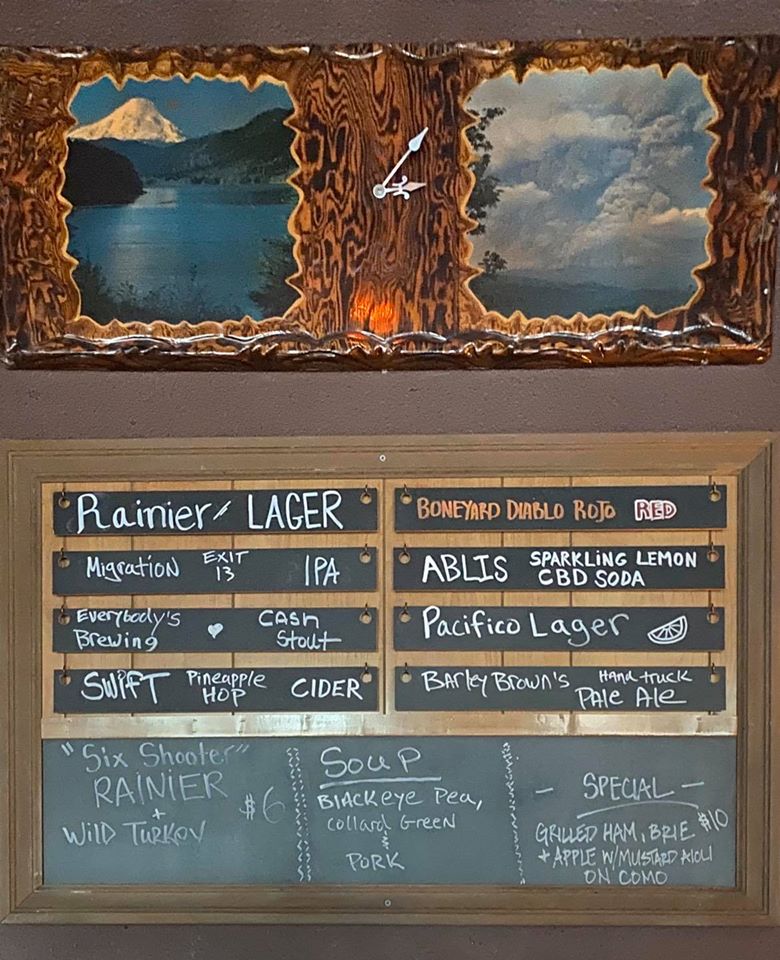 Rainier LAGER
Migration EXIT 13 IPA
Everybody's Brewing ♥ CASH Stout
SWIFT Pineapple HOP CIDER
BONEYARD DIABLO ROJO RED
ABLIS SPARKLING LEMON CBD SODA
Pacifico Lager
Barley Brown's Hand truck Pale Ale
"Six Shooter"
RAINIER
+
Wild Turkey
$6
Soup
Blackeye Pea,
Collard Green
&
PORK
- SPECIAL -
GRILLED HAM, BRIE $10
+ APPLE W/MUSTARD AIOLI
ON COMO